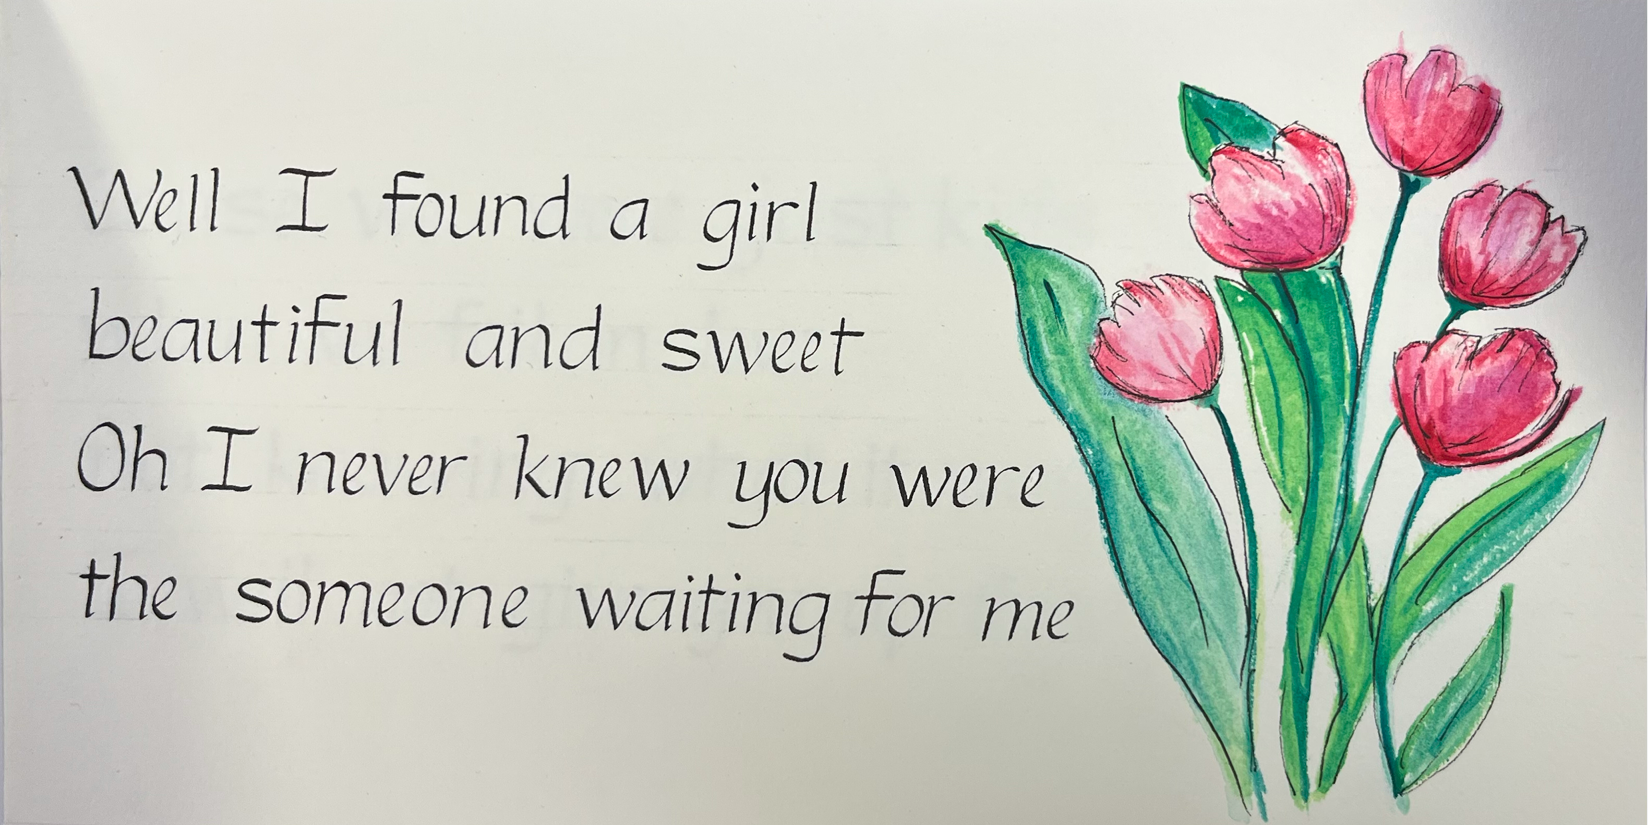 Well I found a girl
beautiful and sweet
Oh I never knew you were
the someone waiting for me